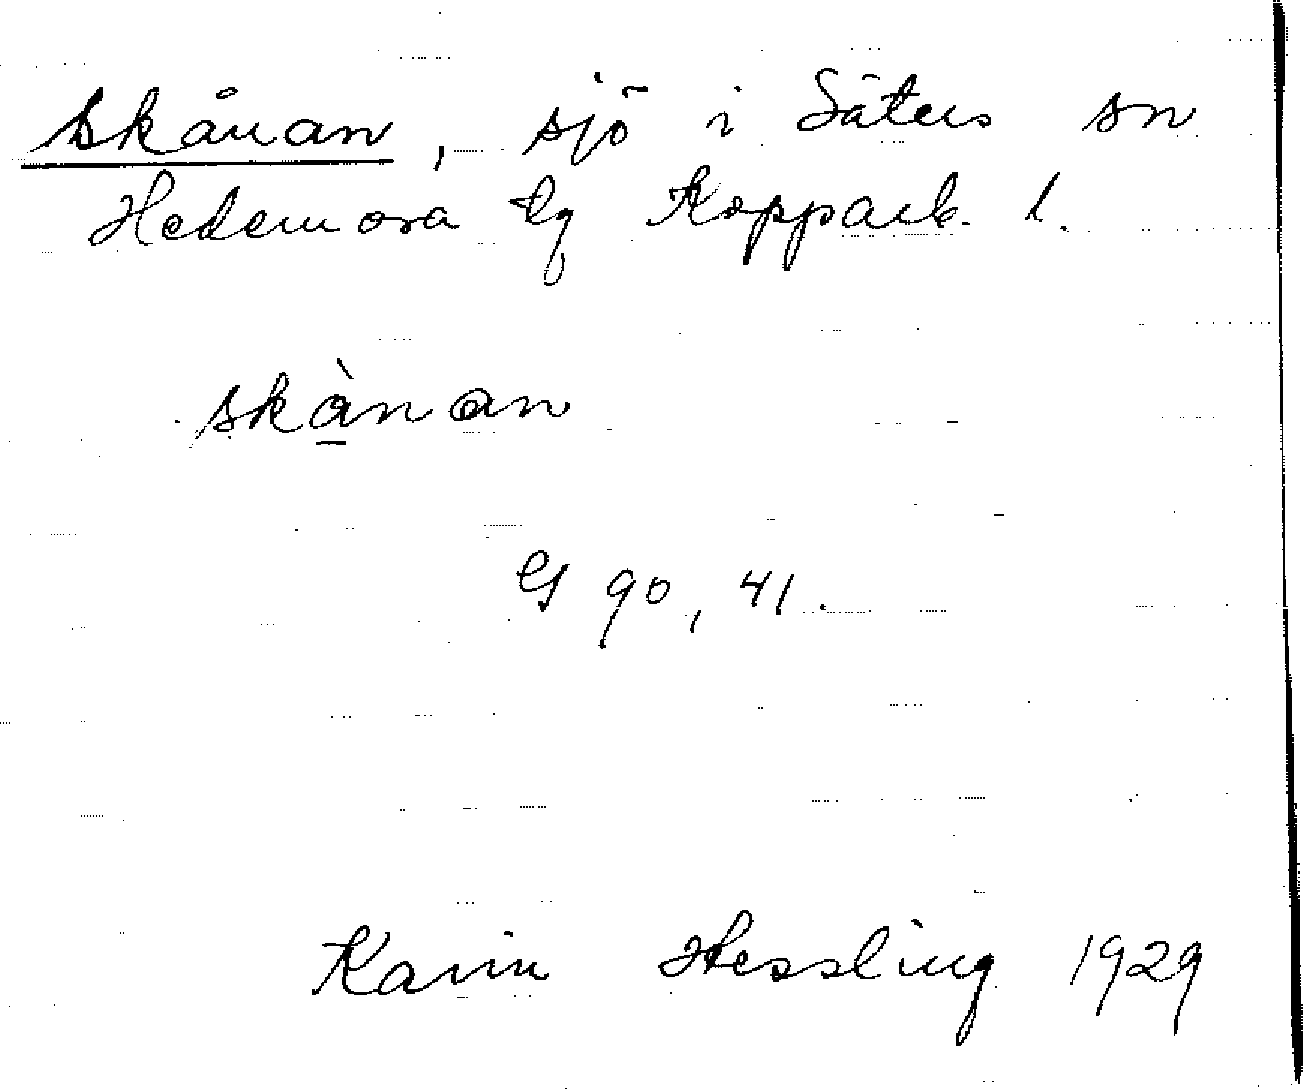 Skånan, sjö i Säters sn
Hedemora tg Kopparb. l.
skànan
G 90, 41.
Karin Hessling 1929